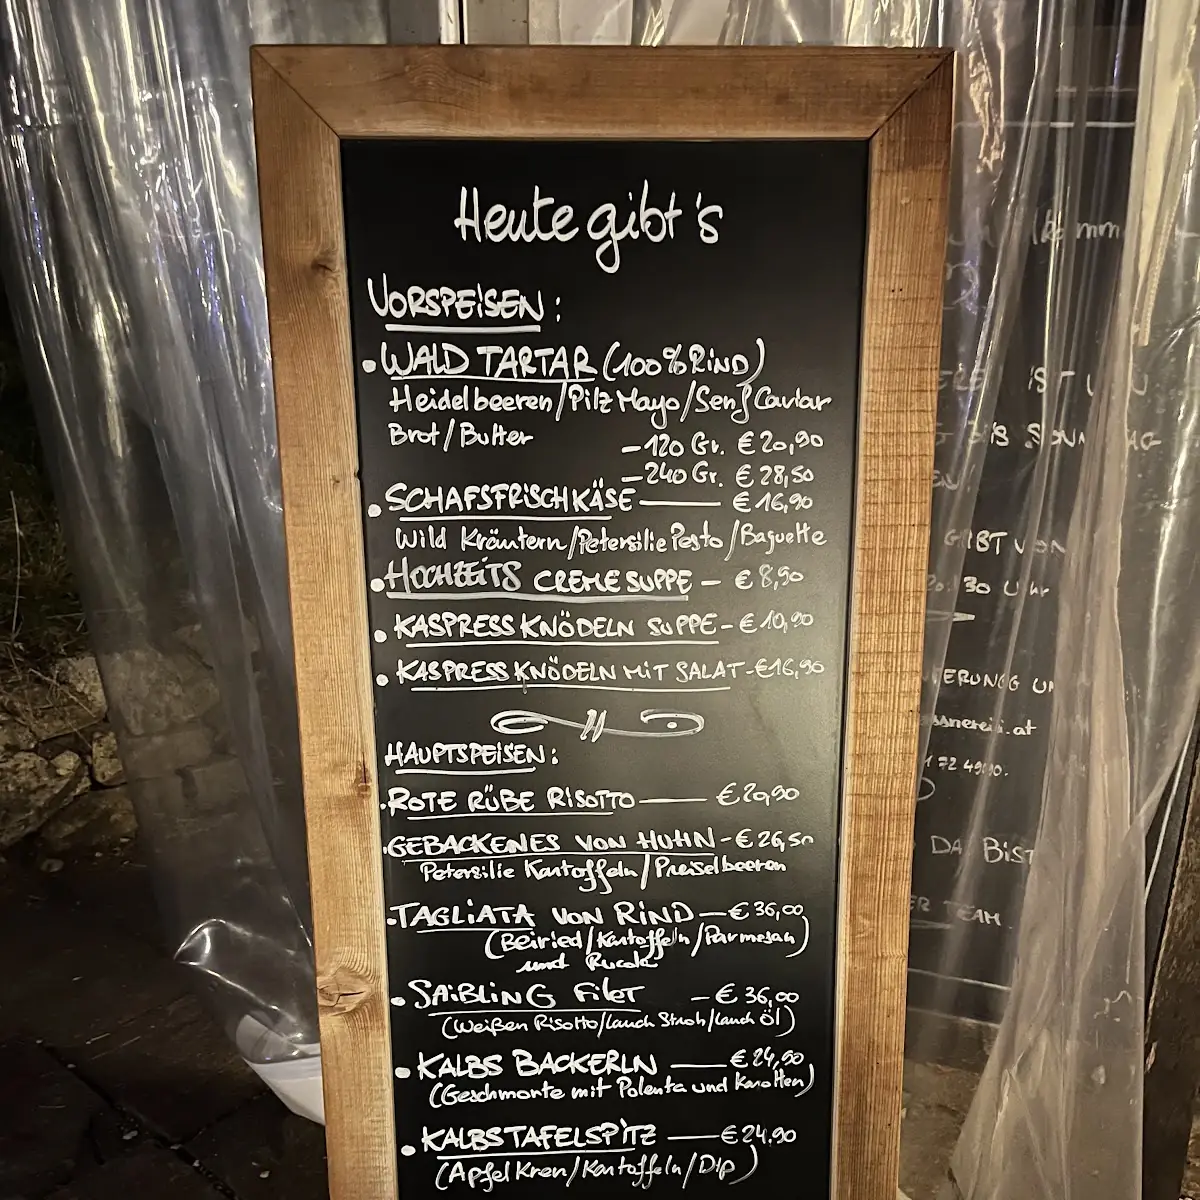 Heute gibt's
VORSPEISEN:
• WALD TARTAR (100% RIND)
Heidelbeeren/Pilz Mayo/Senf Caviar
Brot/Butter
-120 Gr. € 20,90
-240 Gr. € 28,50
• SCHAFSFRISCHKÄSE — € 16,90
Wild Kräutern/Petersilie Pesto/Baguette
• HOCHZEITS CREME SUPPE - € 8,90
• KASPRESS KNÖDELN SUPPE - € 10,90
• KASPRESS KNÖDELN MIT SALAT - € 16,90
HAUPTSPEISEN:
• ROTE RÜBE RISOTTO — € 20,90
• GEBACKENES VON HUHN - € 26,50
Petersilie Kartoffeln/Preiselbeeren
• TAGLIATA VON RIND — € 36,00
(Beiried/Kartoffeln/Parmesan)
und Rucola
• SAIBLING FILET - € 36,00
(Weißen Risotto/Lauch Stroh/Lauch Öl)
• KALBS BACKERLN — € 24,90
(Geschmorte mit Polenta und Karotten)
• KALBSTAFELSPITZ — € 24,90
(Apfel Kren/Kartoffeln/Dip)
IST
BIS SONNTAG
GIBT VON
30 Uhr
.at
72 49
DA BIST
TEAM